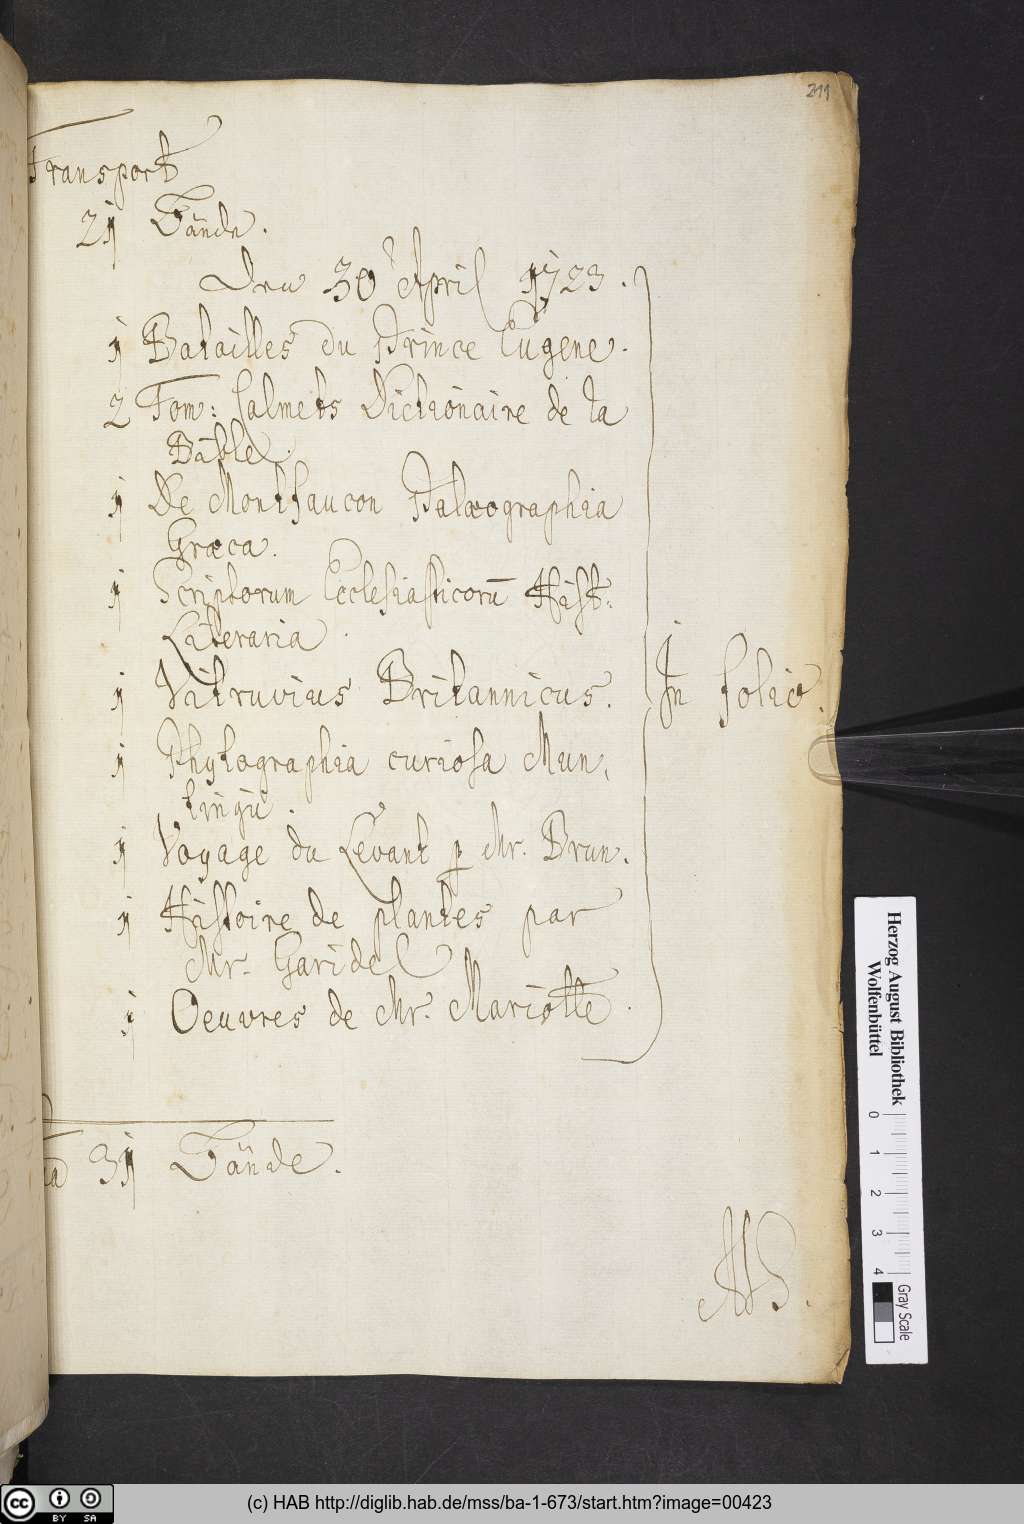 211
Transport
21 Bände.
Den 30 April 1723.
1 Batailles du Prince Eugene.
2 Tom: Calmets Dictionaire de la
Bible.
1 De Montfaucon Palæographia
Græca.
1 Scriptorum Ecclesiasticorū Hist:
Literaria.
1 Vitruvius Britannicus.
In folio.
1 Phytographia curiosa Mun,
tingii.
1 Voyage du Levant p Mr. Brun.
1 Histoire de plantes par
Mr. Garidel
1 Oeuvres de Mr. Mariotte.
31 Bände.
Herzog August Bibliothek
Wolfenbüttel
0 1 2 3 4
Gray Scale
cc BY SA
(c) HAB http://diglib.hab.de/mss/ba-1-673/start.htm?image=00423